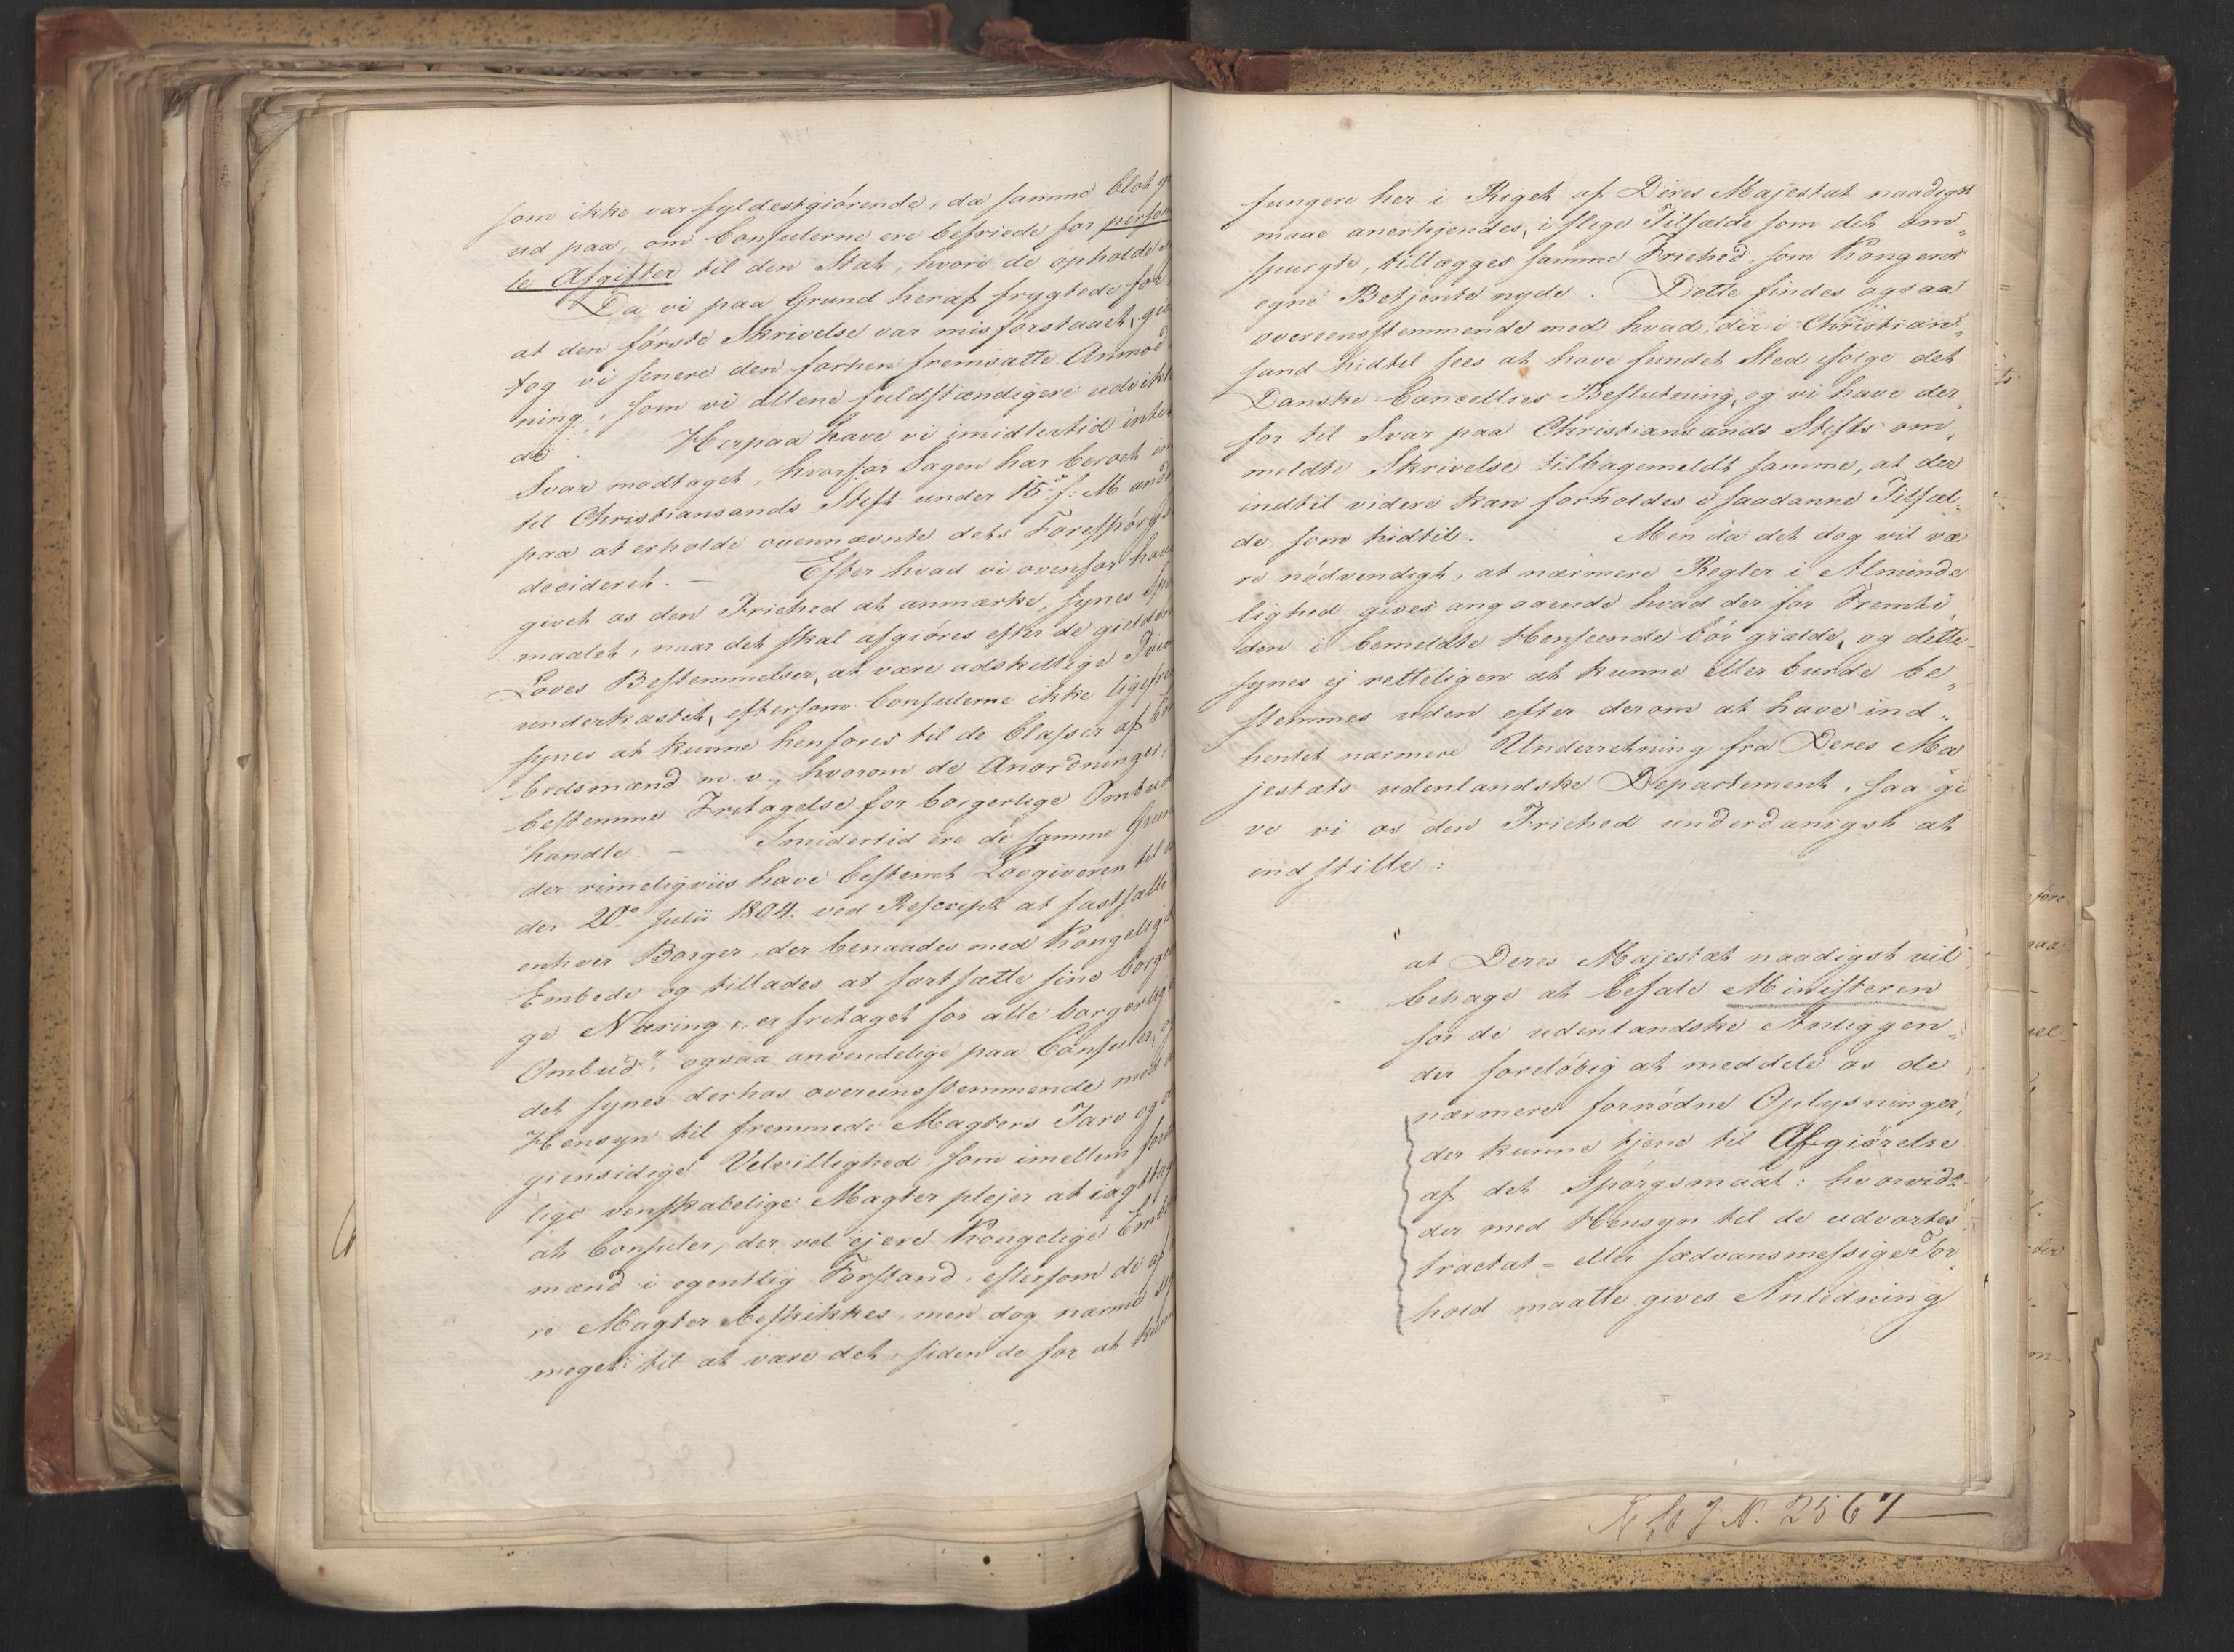 som ikke var fyldestgiörende, da samme blot g
ud paa, om Consulerne ere befriede for person
le Afgifter til den Stat, hvori de opholde s
Da vi paa Grund heraf frygtede for,
at den förste Skrivelse var misforstaaet, gien
tog vi senere den forhen fremsatte Anmod
ning, som vi allene fuldstændigere udvikle
de. Herpaa have vi imidlertid intet
Svar modtaget, hvorfor Sagen har beroet in
til Christiansands Stift under 15de f: M andt
paa at erholde ovennævnte dets Forespörgs
decideret. — Efter hvad vi ovenfor have
givet os den Friehed at anmærke, synes Spö
maalet, naar det skal afgiöres efter de gielden
Loves Bestemmelser, at være adskillige Tvivl
underkastet, eftersom Consulerne ikke ligefre
synes at kunne henföres til de Classer af Em
bedsmænd m. v., hvorom de Anordninger,
bestemme Fritagelse for borgerlige Ombud
handle. — Imidertid ere de samme Grun
der rimeligviis have bestemt Lovgiveren til u
der 20de Julii 1804. ved Rescript at fastsætte
enhver Borger, der benaades med Kongeligt
Embede og tillades at fortsætte sine borger
ge Næring, er fritaget for alle borgerlig
Ombud", ogsaa anvendelige paa Consuler, og
det synes derhos overeensstemmende med
Hensyn til fremmede Magters Tarv og
giensidige Velvillighed, som imellem fors
lige venskabelige Magter plejer at iagttag
at Consuler, der vel ej ere Kongelige Emb
mænd i egentlig Forstand, eftersom de af
re Magter beskikkes, men dog nærme sig
meget til at være det, siden de for at kun
fungere her i Riget af Deres Majestæt naadigst
maae anerkjendes, i slige Tilfælde som det om„
spurgte, tillægges samme Friehed, som Kongens
egne Betjente nyde. Dette findes ogsaa
overeensstemmende med hvad der i Christian„
sand hidtil sees at have fundet Sted ifölge det
Danske Cancellies Beslutning, og vi have der„
for til Svar paa Christiansands Stifts om„
meldte Skrivelse tilbagemeldt samme, at der
indtil videre kan forholdes i saadanne Tilfæl„
de som hidtil. Men da det dog vil væ
re nödvendigt, at nærmere Regler i Alminde
lighed gives angaaende hvad der for Fremti„
den i bemeldte Henseende bör gjælde, og dette
synes ej retteligen at kunne eller burde be„
stemmes uden efter derom at have ind„
hentet nærmere Underretning fra Deres Ma
jestæts udenlandske Departement, saa gi
ve vi os den Friehed underdanigst at
indstille:
" at Deres Majestæt naadigst vil
behage at befale Ministeren
for de udenlandske Anliggen„
der forelöbig at meddele os de
nærmere fornödne Oplysninger,
der kunne tjene til Afgiörelse
af det Spörgsmaal: hvorvidt
der med Hensyn til de udvortes
tractat= eller sædvansmessige For„
hold maatte gives Anledning
N. 2567